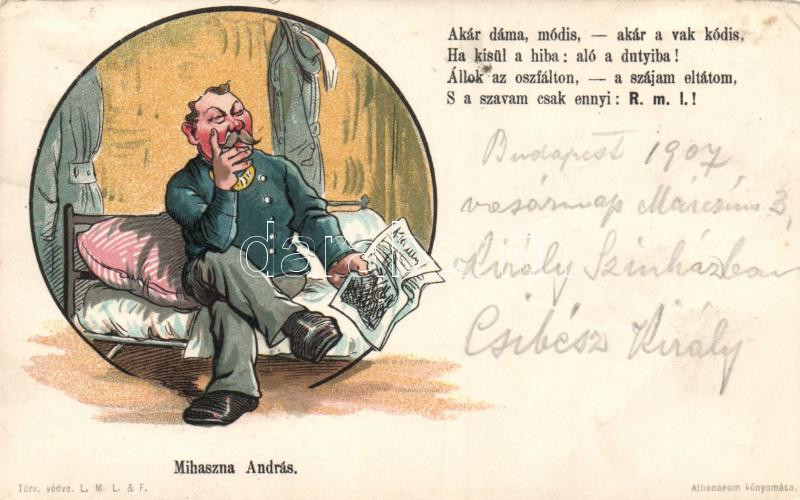 Akár dáma, módis, — akár a vak kódis,
Ha kisül a hiba: aló a dutyiba!
Állok az oszfálton, — a szájam eltátom,
S a szavam csak ennyi: R. m. l.!
Budapest 1907
vasárnap Március 3,
Király Szinházban
Csibész Király
darabanth
Mihaszna András.
Törv. védve. L. M. L. & F.
Athenaeum kőnyomása.